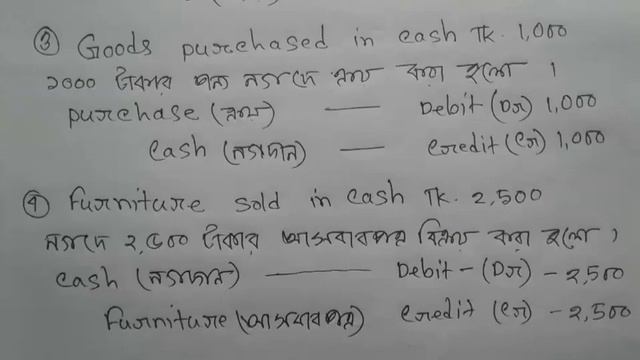 ③ Goods purchased in cash TK. 1,000
১০০০ টাকার পন্য নগদে ক্রয় করা হলো ।
purchase (ক্রয়) — Debit (Dr) 1,000
cash (নগদান) — credit (Cr) 1,000
④ Furniture sold in cash TK. 2,500
নগদে ২,৫০০ টাকার আসবাবপত্র বিক্রয় করা হলো ।
cash (নগদান) — Debit - (Dr) - 2,500
Furniture (আসবাবপত্র) credit (Cr) - 2,500